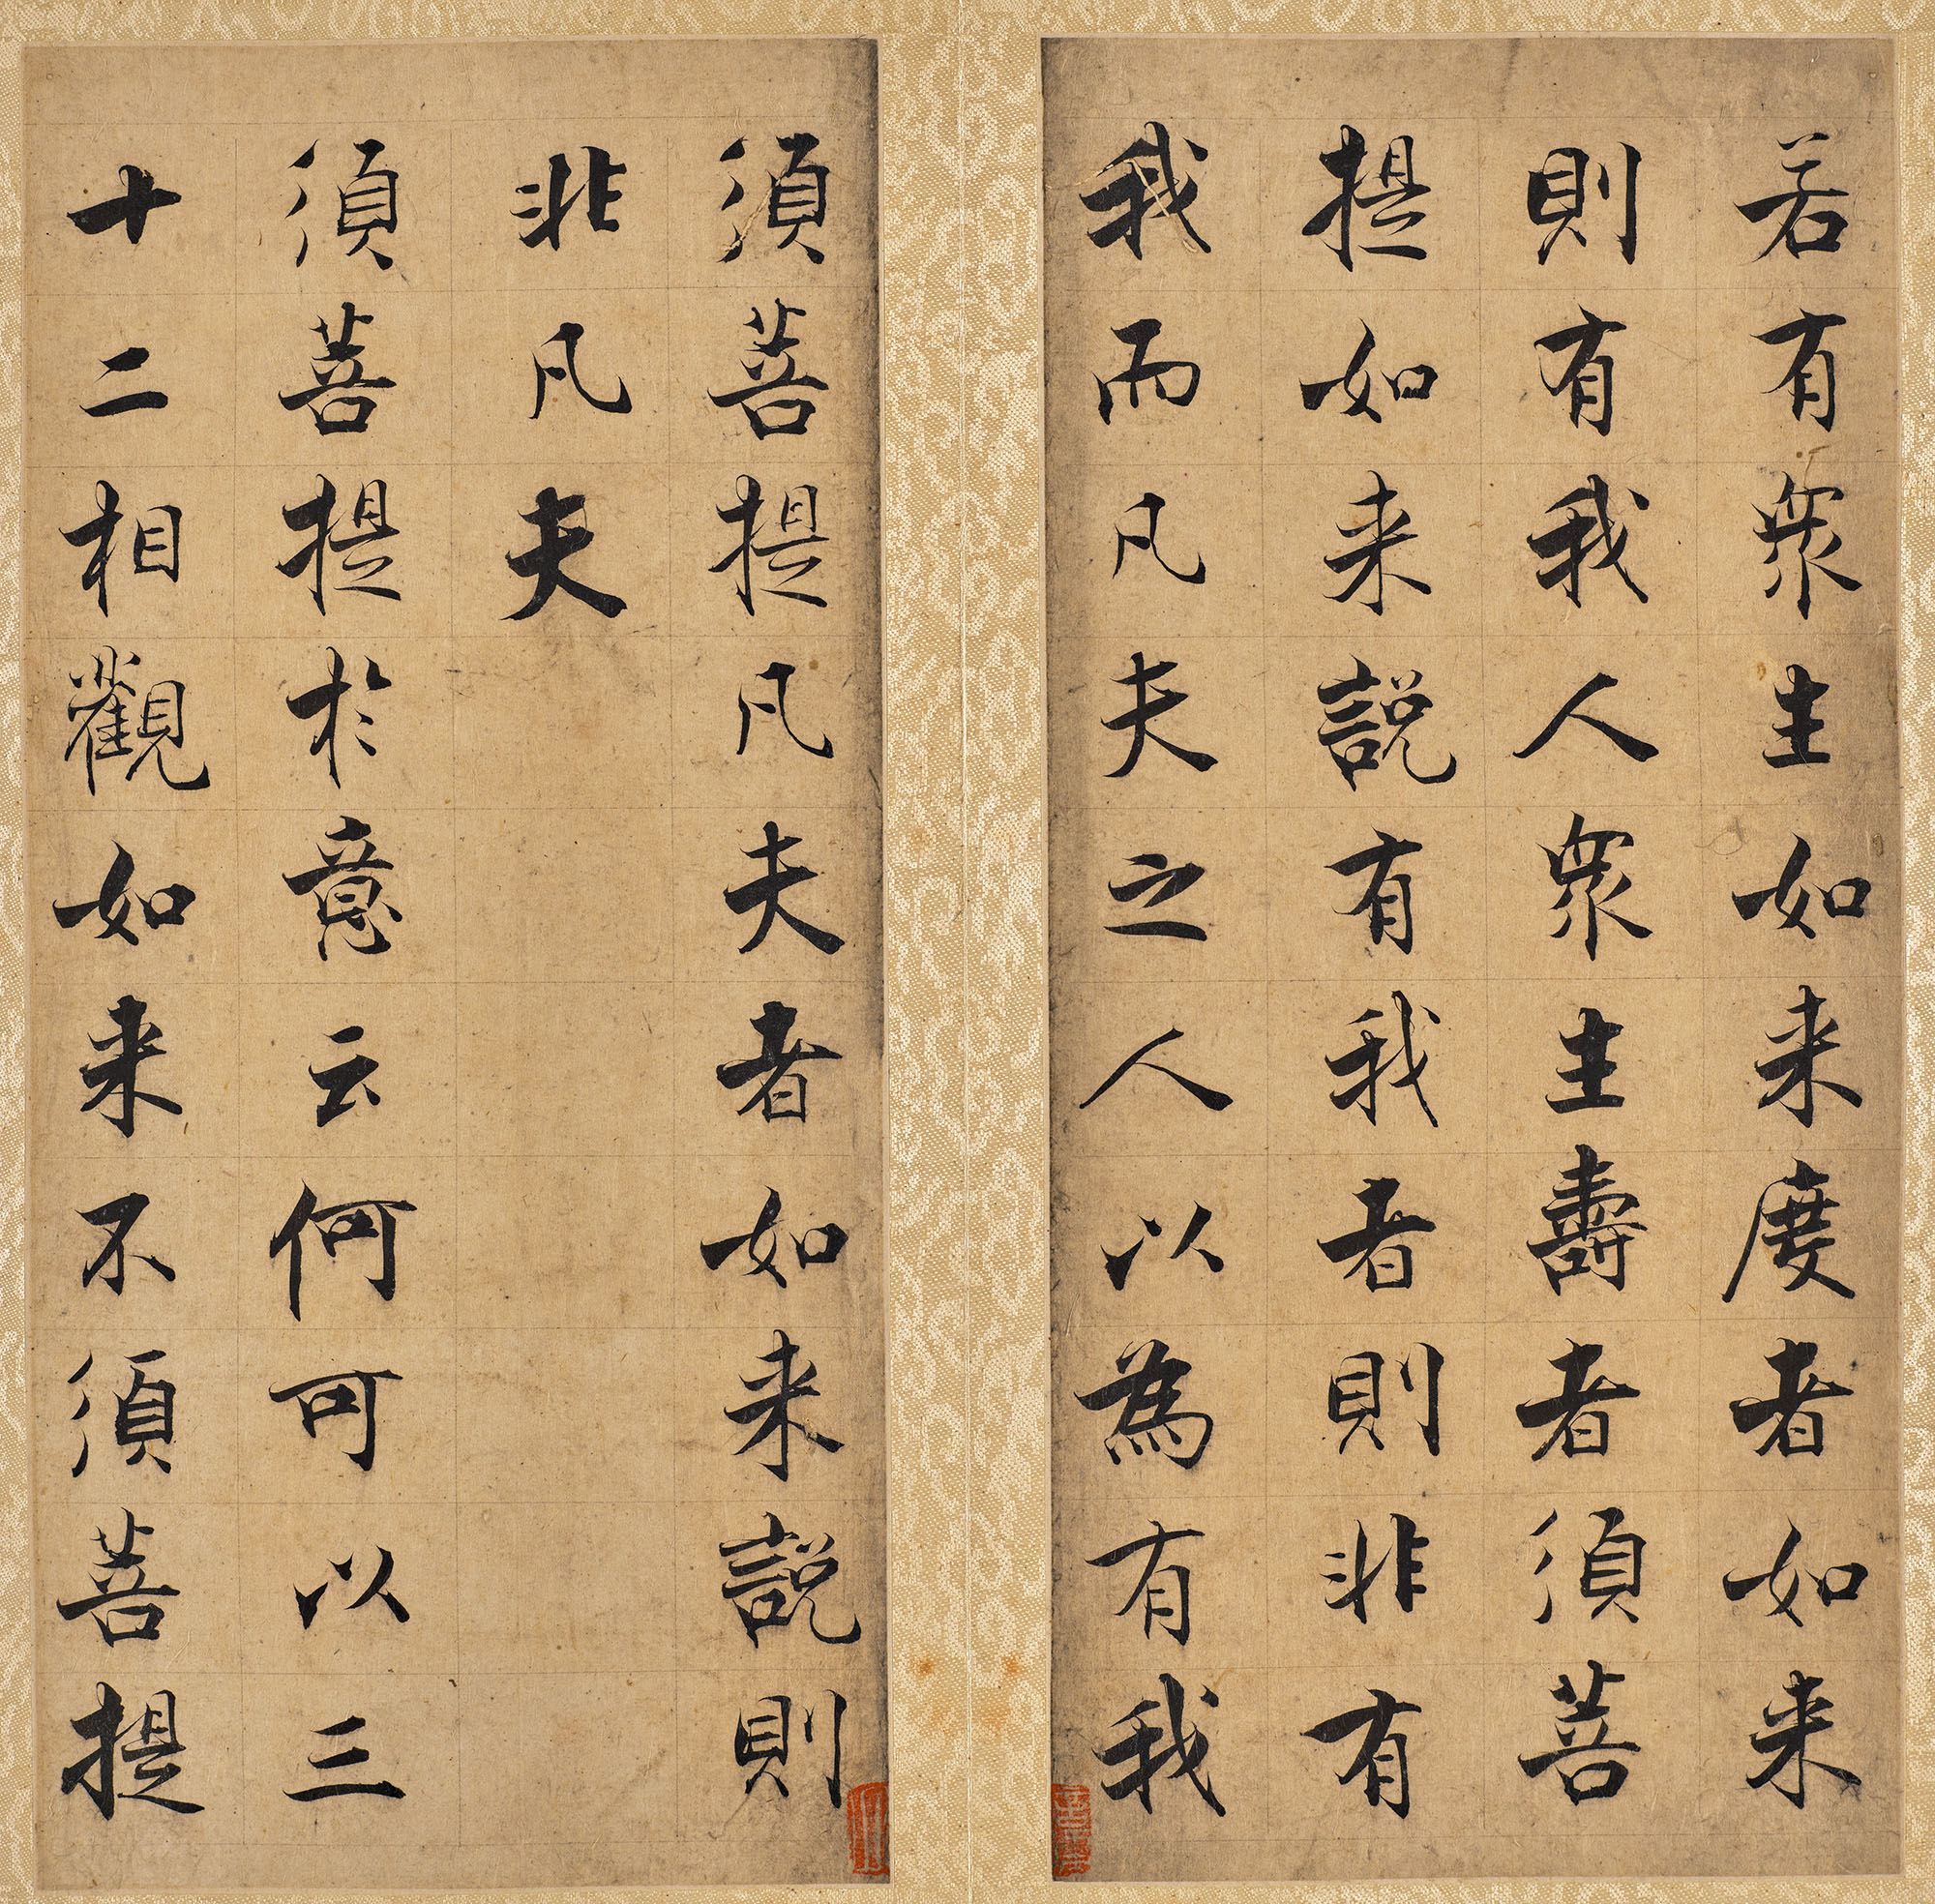 若有衆生如来度者如来
則有我人衆生壽者須菩
提如来說有我者則非有
我而凡夫之人以為有我
須菩提凡夫者如来說則
非凡夫
須菩提於意云何可以三
十二相觀如来不須菩提